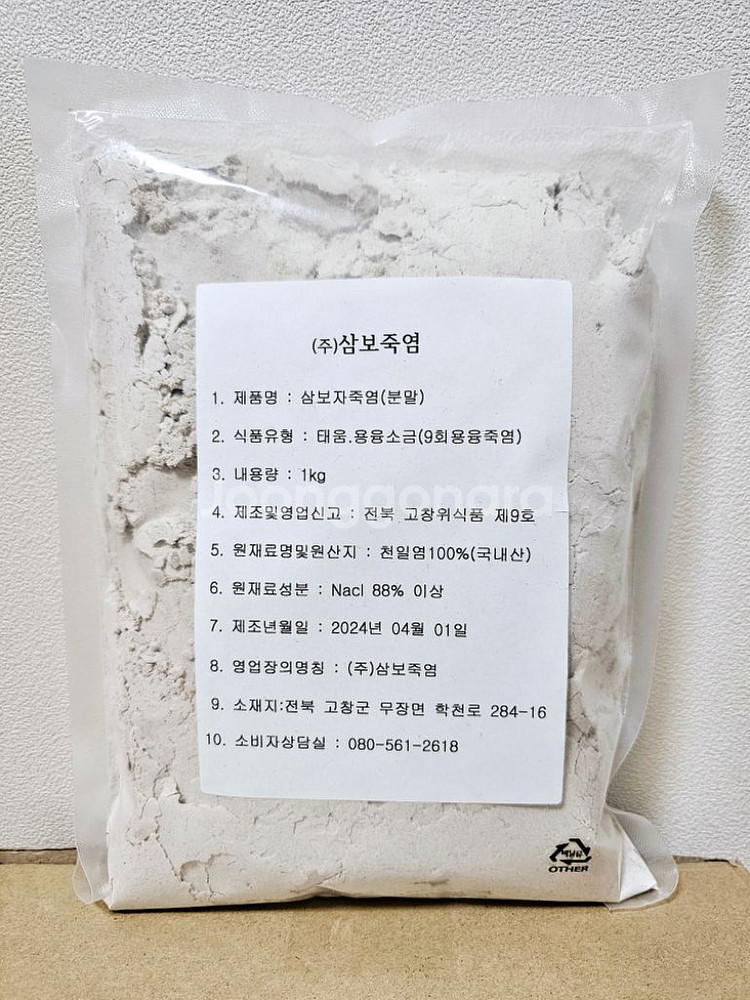 (주)삼보죽염
1. 제품명 : 삼보자죽염(분말)
2. 식품유형 : 태움.용융소금(9회용융죽염)
3. 내용량 : 1kg
Joonggonara
4. 제조및영업신고 : 전북 고창위식품 제9호
5. 원재료명및원산지 : 천일염100%(국내산)
6. 원재료성분 : Nacl 88% 이상
7. 제조년월일 : 2024년 04월 01일
8. 영업장의명칭 : (주)삼보죽염
9. 소재지:전북 고창군 무장면 학천로 284-16
10. 소비자상담실 : 080-561-2618
비닐류
OTHER